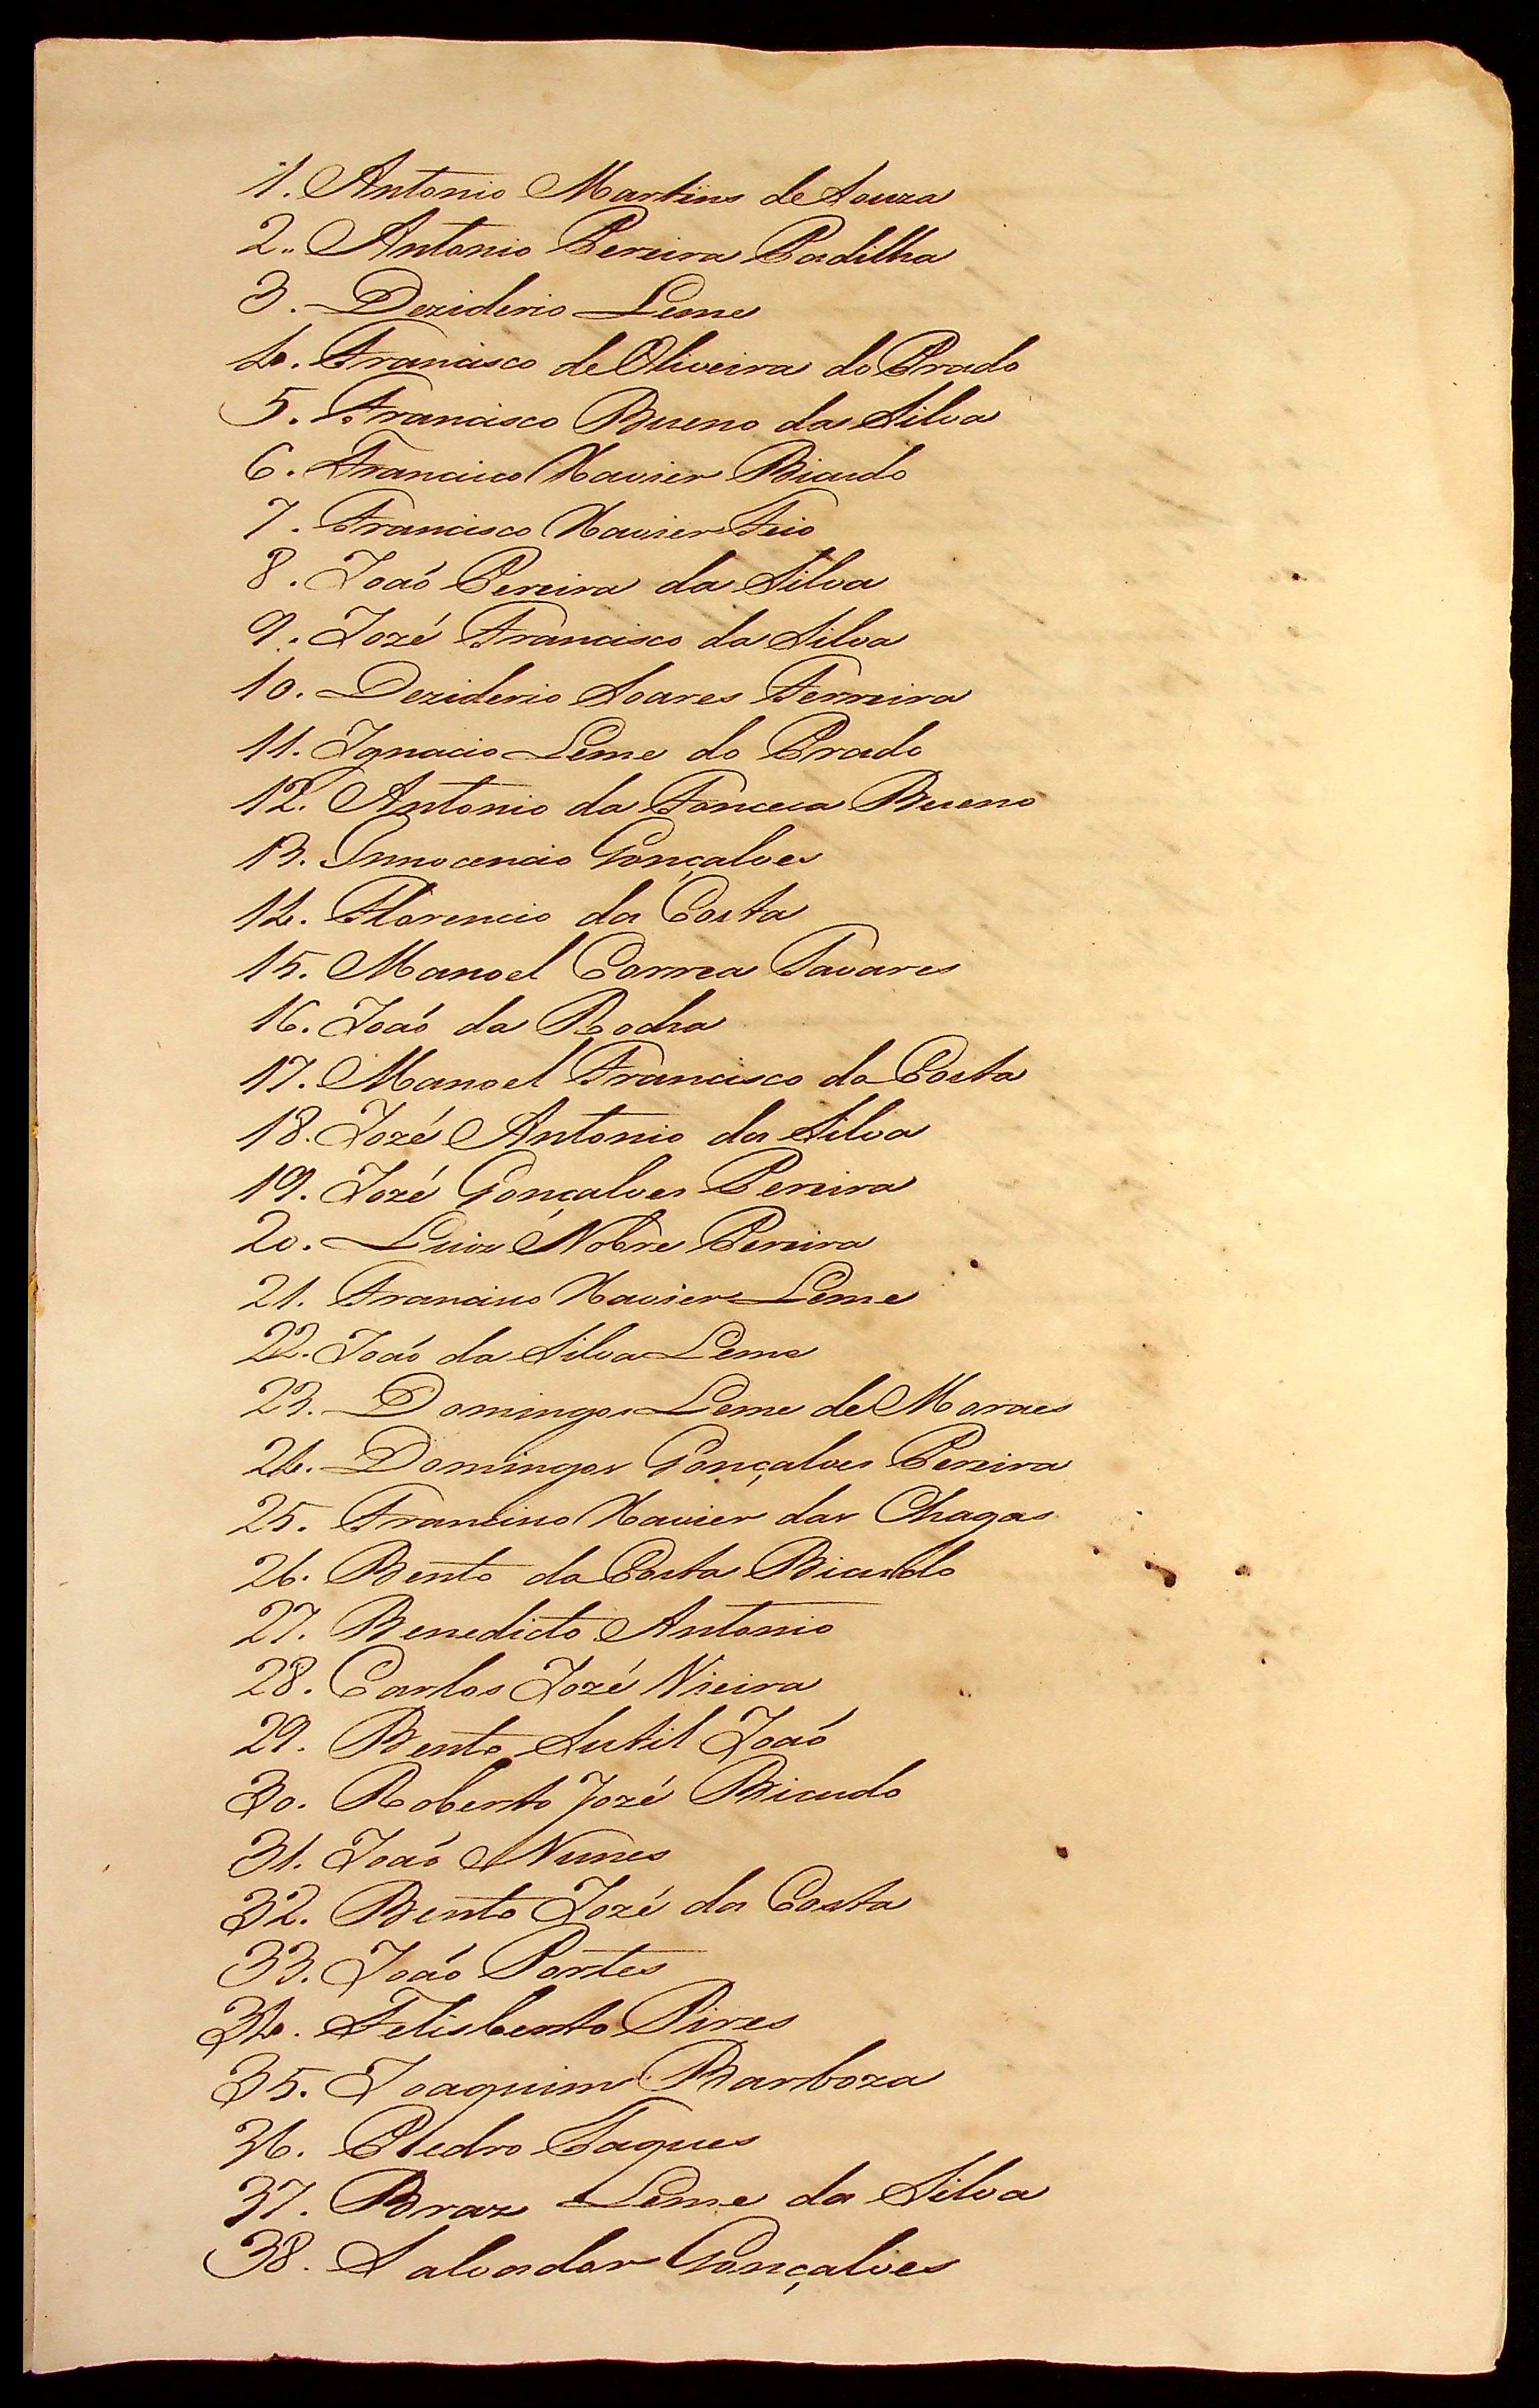 1. Antonio Martins de Souza
2. Antonio Pereira Padilha
3. Deziderio Leme
4. Francisco de Oliveira do Prado
5. Francisco Bueno da Silva
6. Francisco Xavier Bicudo
7. Francisco Xavier Feio
8. João Pereira da Silva
9. Jozé Francisco da Silva
10. Deziderio Soares Ferreira
11. Ignacio Leme do Prado
12. Antonio da Fonceca Bueno
13. Innocencio Gonçalves
14. Florencio da Costa
15. Manoel Correa Tavares
16. João da Rocha
17. Manoel Francisco da Costa
18. Jozé Antonio da Silva
19. Jozé Gonçalves Pereira
20. Luiz Nobre Pereira
21. Francisco Xavier Leme
22. João da Silva Leme
23. Domingos Leme de Moraes
24. Domingos Gonçalves Pereira
25. Francisco Xavier das Chagas
26. Bento da Costa Bicudo
27. Benedicto Antonio
28. Carlos Jozé Vieira
29. Bento Sutil João
30. Roberto Jozé Bicudo
31. João Nunes
32. Bento Jozé da Costa
33. João Portes
34. Felisberto Pires
35. Joaquim Barboza
36. Pedro Taques
37. Braz Leme da Silva
38. Salvador Gonçalves